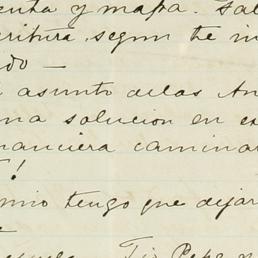 enta y mapa. Sal
critura, segun te in
do —
asunto de las An
na solucion en ex
nanciera caminar
!
mio tengo que dejar
Tio Pepe y